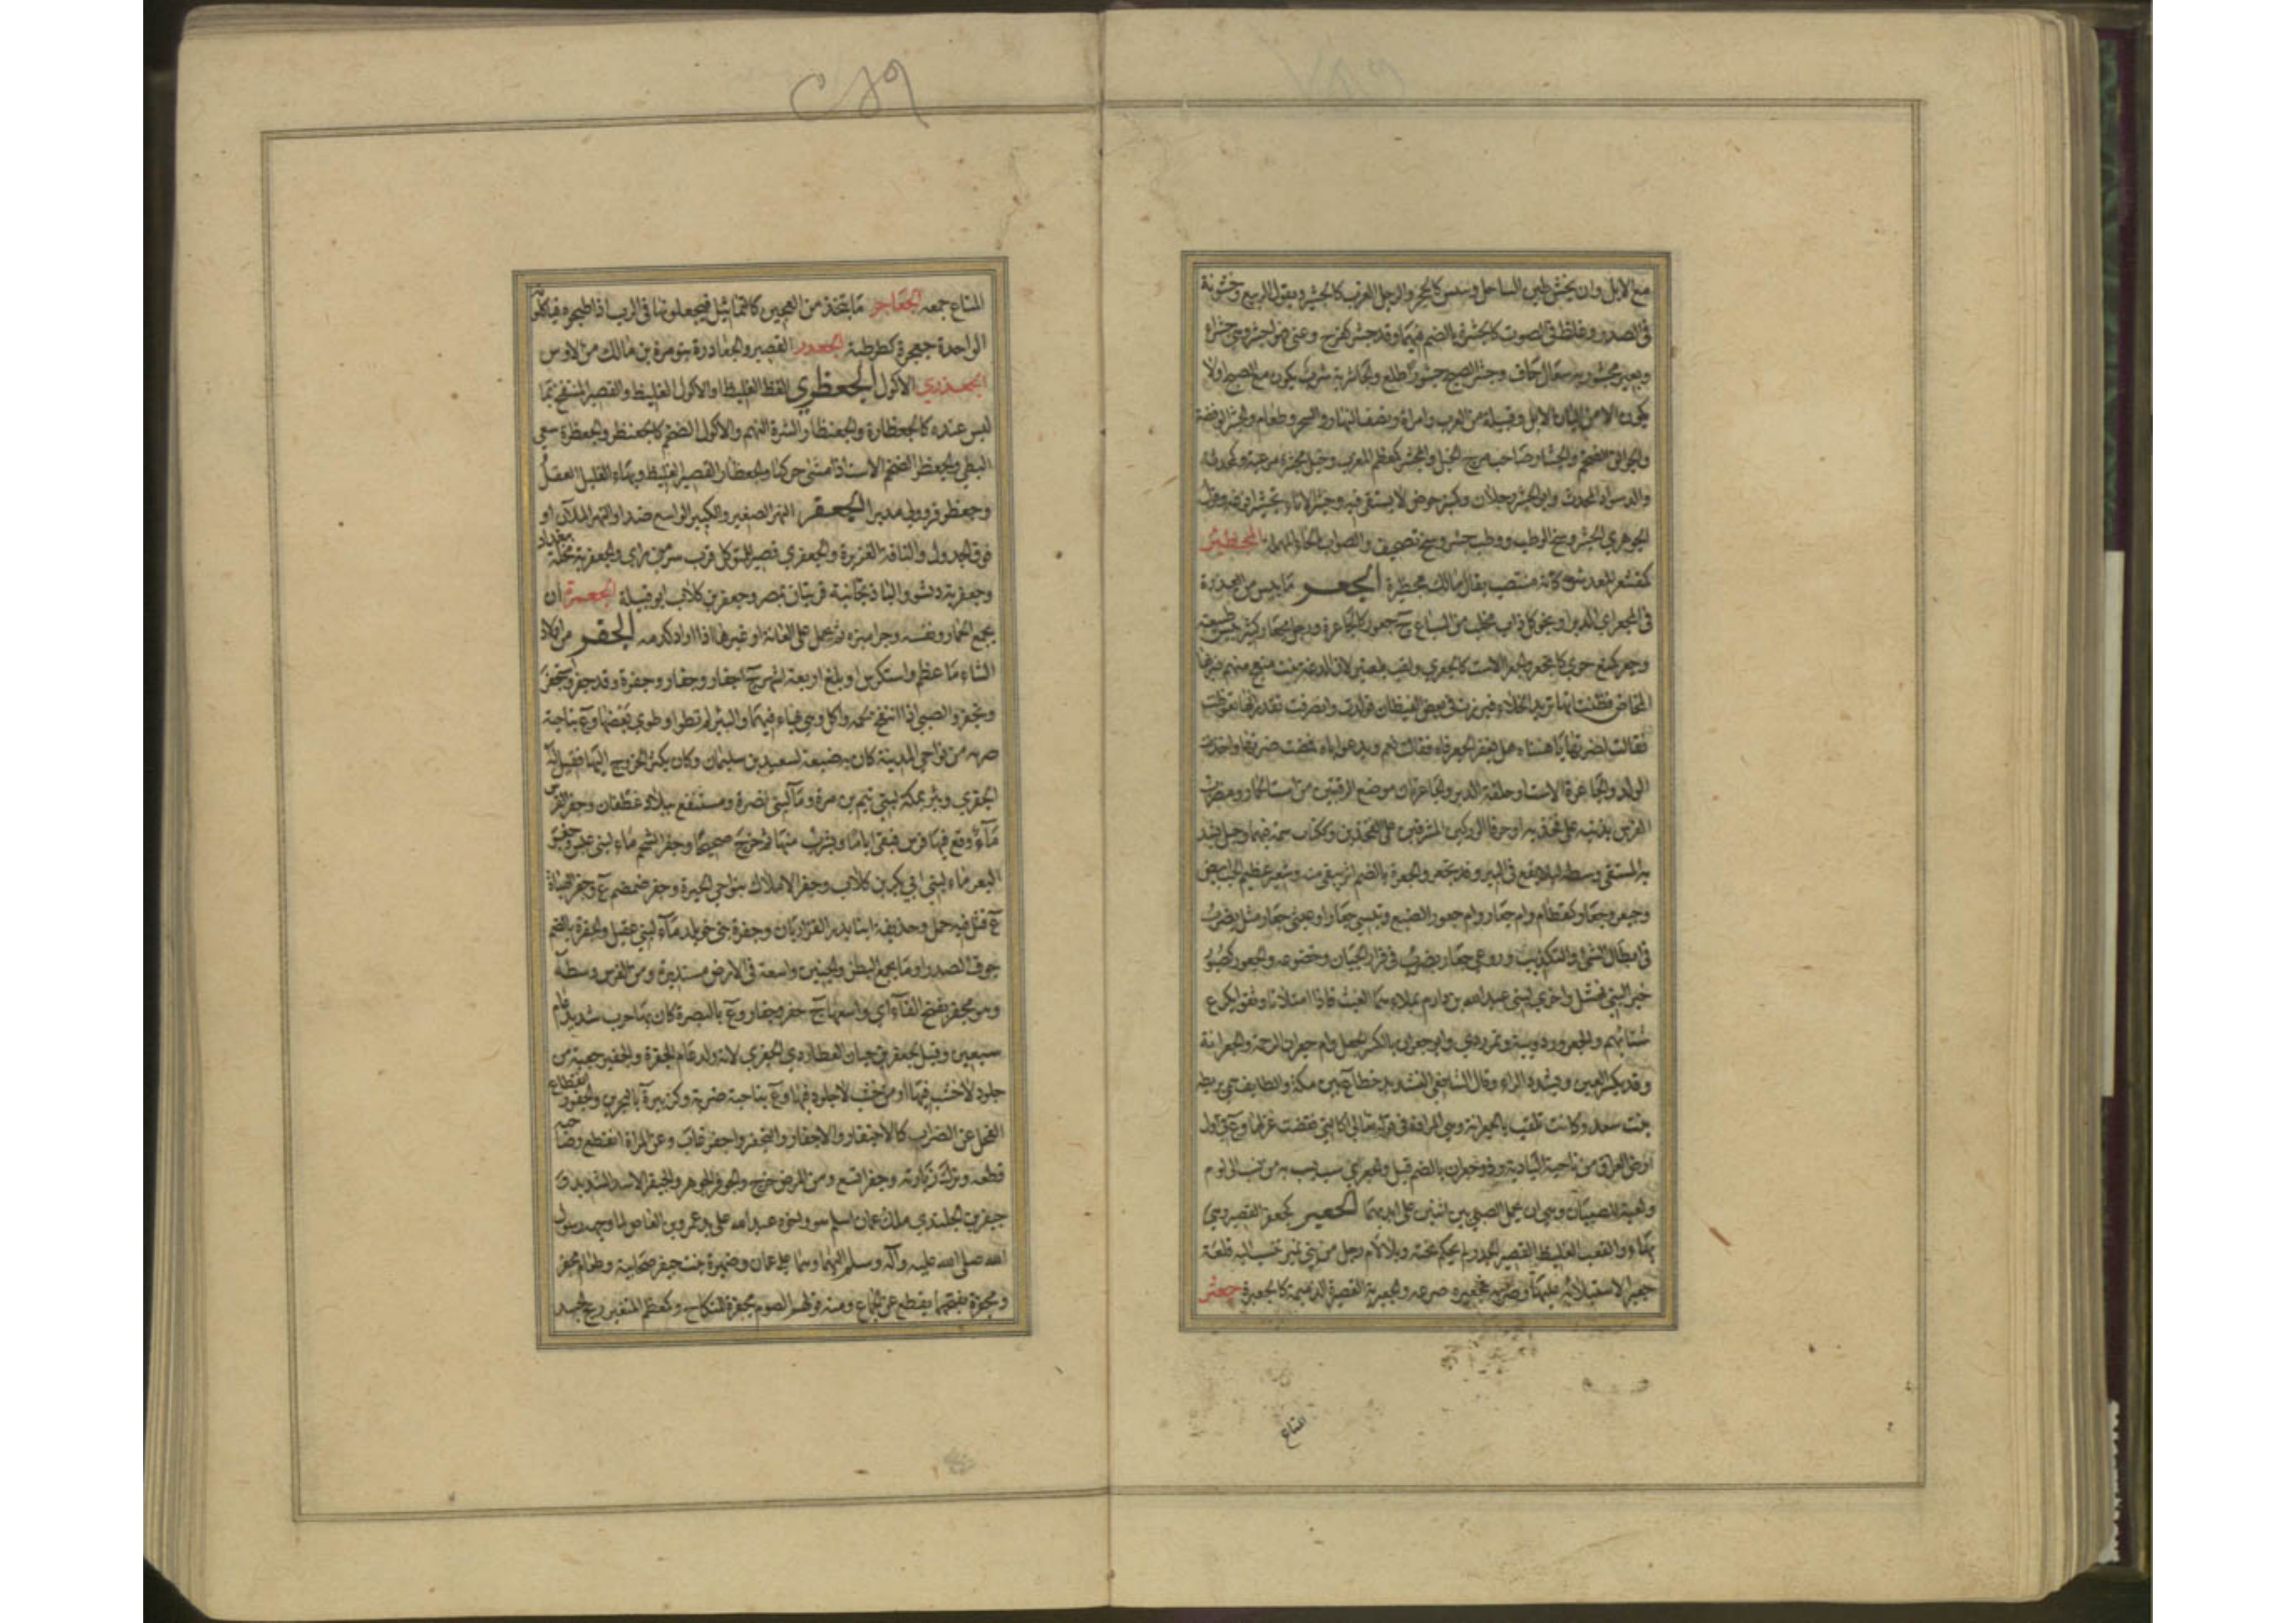 مع الابل وان يخشن طين الساحل وييبس كالحجر والرجل العزب كالجشير وبقول الربيع وخشونة
في الصدر وغلظ في الصوت كالجشرة بالضم فيهما وقد جشر كفرح وعني فهو اجشر وهي جشراء
وبعير مجشور به سعال جاف وجشر الصبح جشورا طلع والجاشرية شرب يكون مع الصبح او لا
يكون الا من البان الابل وقبيلة من العرب وامراة ونصف النهار والسحر وطعام والجشير الوفضة
والجوالق الضخم والجشار صاحب مرج الخيل والمجشر كمعظم المعزب وخيل مجشرة مرعية وكمحدث
والد سوار المحدث وابو الجشر رجلان وكمنبر حوض لا يستقى فيه وجشر الاناء تجشيرا فرغه وقول
الجوهري الجشر وسخ الوطب ووطب جشر وسخ تصحيف والصواب بالحاء المهملة المجظئر
كمقشعر المعد شره كانه منتصب يقال مالك مجظئرة الجعر ما يبس من العذرة
في المجعر اي الدبر او نجو كل ذات مخلب من السباع ج جعور كالجاعرة ورجل مجعار كثر يبس طبيعته
وجعر كمنع خري كانجعر والجعراء الاست كالجعرى ولقب بلعنبر لان دغة بنت منعج منهم ضربها
المخاض فظنت انها تريد الخلاء فبرزت في بعض الغيطان فولدت وانصرفت تقدر انها تغوطت
فقالت لضرتها يا هنتاه هل يفغر الجعر فاه فقالت نعم ويدعو اباه فمضت ضرتها واخذت
الولد والجاعرة الاست او حلقة الدبر والجاعرتان موضع الرقمتين من است الحمار ومضرب
الفرس بذنبه على فخذيه او حرفا الوركين المشرفين على الفخذين وككتاب سمة فيهما وحبل يشد
به المستقي وسطه لئلا يقع في البير وقد تجعر والجعرة بالضم اثر يبقى منه وشعير عظيم الحب ابيض
وجيعر وجعار كقطام وام جعار وام جعور الضبع وتيسي جعار او عيثي جعار مثل يضرب
في ابطال الشيء والتكذيب وروعي جعار يضرب في فرار الجبان وخضوعه والجعور كصبور
خبراء لبني نهشل واخرى لبني عبد الله بن دارم يملاءهما الغيث فاذا امتلاتا وثقوا بكرع
شتائهم والجعرور دويبة وتمر ردي وابو جعران بالكسر الجعل وام جعران الرخمة والجعرانة
وقد يكسر العين ويشدد الراء وقال الشافعي التشديد خطأ ع بين مكة والطايف سمي بريطة
بنت سعد وكانت تلقب بالجعرانة وهي المرادة في قوله تعالى كالتي نقضت غزلها وع في اول
ارض العراق من ناحية البادية وذو جعران بالضم قيل والجعرى سب يسب به من نسب الى لوم
ولعبة للصبيان وهي ان يحمل الصبي بين اثنين على ايديهما الجعبر كجعفر القصير وهي
بهاء والقعب الغليظ القصير الجدر لم يحكم نحته وبلا لام رجل من بني نمير تنسب اليه قلعة
جعبر لاستيلائه عليها وضربه فجعبره صرعه والجعبرية القصيرة الدميمة كالجعبرة جعثر
المتاع
المتاع جمعه الجعاجر ما يتخذ من العجين كالتماثيل فيجعلونها في الرب اذا طبخوه فياكلونه
الواحدة جعجرة كطرطبة الجعدر القصير والجعادرة بنو مرة بن مالك من الاوس
الجعذري الاكول الجعظري الفظ الغليظ او الاكول الغليظ والقصير المنتفخ بما
ليس عنده كالجعظارة والجعنظار والشره النهم والاكول الضخم كالجعنظر والجعظرة سعي
البطي والجعظر الضخم الاست اذا مشى حركها والجعظار القصير الغليظ وبهاء القليل العقل
وجعظر فر وولى مدبرا الجعفر النهر الصغير والكبير الواسع ضد او النهر الملآن او
فوق الجدول والناقة الغزيرة والجعفري قصر للمتوكل قرب سر من راى والجعفرية محلة ببغداد
وجعفرية دنشو والباذنجانية قريتان بمصر وجعفر بن كلاب ابو قبيلة الجعمرة ان
يجمع الحمار نفسه وجراميزه ثم يحمل على العانة او غيرها اذا اراد كدمه الجفر من اولاد
الشاء ما عظم واستكرش او بلغ اربعة اشهر ج اجفار وجفار وجفرة وقد جفر واستجفر
وتجفر والصبي اذا انتفخ لحمه واكل وهي بهاء فيهما والبئر لم تطو او طوي بعضها وع بناحية
ضرية من نواحي المدينة كان به ضيعة لسعيد بن سليمان وكان يكثر الخروج اليها فقيل له
الجفري وبئر بمكة لبني تيم بن مرة وماء لبني نصر ومستنقع ببلاد غطفان وجفر الفرس
ماء وقع فيها فرس فبقي اياما ويشرب منها ثم خرج صحيحا وجفر الشحم ماء لبني عبس وجفر
البعر ماء لبني ابي بكر بن كلاب وجفر الاملاك بنواحي الحيرة وجفر ضمضم ع وجفر الهباءة
ع قتل فيه حمل وحذيفة ابنا بدر الفزاريان وجفرة بني خويلد ماء لبني عقيل والجفرة بالضم
جوف الصدر او ما يجمع البطن والجنبين وسعة في الارض مستديرة ومن الفرس وسطه
وهو مجفر بفتح الفاء اي واسعها ج جفر وجفار وع بالبصرة كان بها حرب شديد عام
سبعين وقيل لجعفر بن حيان العطاردي الجفري لانه ولد عام الجفرة والجفير جعبة من
جلود لا خشب فيها او من خشب لا جلود فيها وع بناحية ضرية وكزبير ة بالبحرين والجفور انقطاع
الفحل عن الضراب كالاجتفار والاجفار والتجفر واجفر غاب وعن المراة انقطع وصاحبه
قطعه وترك زيارته وجفر اتسع ومن المرض خرج والجوفر الجوهر والجيفر الاسد الشديد و
جيفر بن الجلندى ملك عمان اسلم هو واخوه عبد الله على يد عمرو بن العاص لما وجهه رسول
الله صلى الله عليه وآله وسلم اليهما وهما على عمان وضميرة بنت جيفر صحابية وطعام مجفر
ومجفرة بفتحهما يقطع عن الجماع ومنه قولهم الصوم مجفرة للنكاح وكمعظم المتغير ريح الجسد